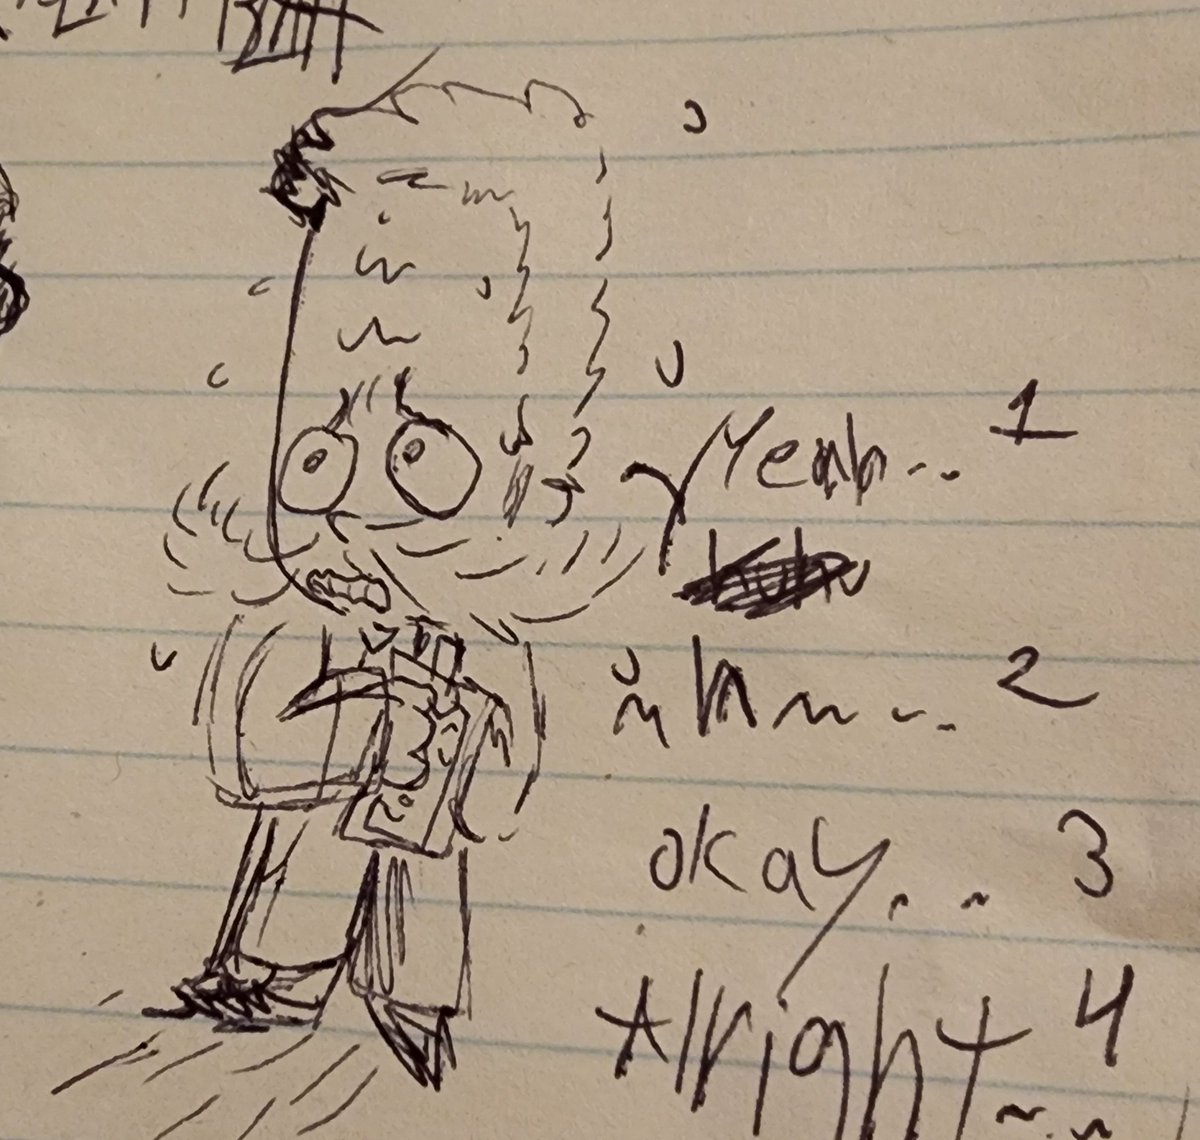 Yeah... 1
uhm... 2
okay... 3
Alright... 4